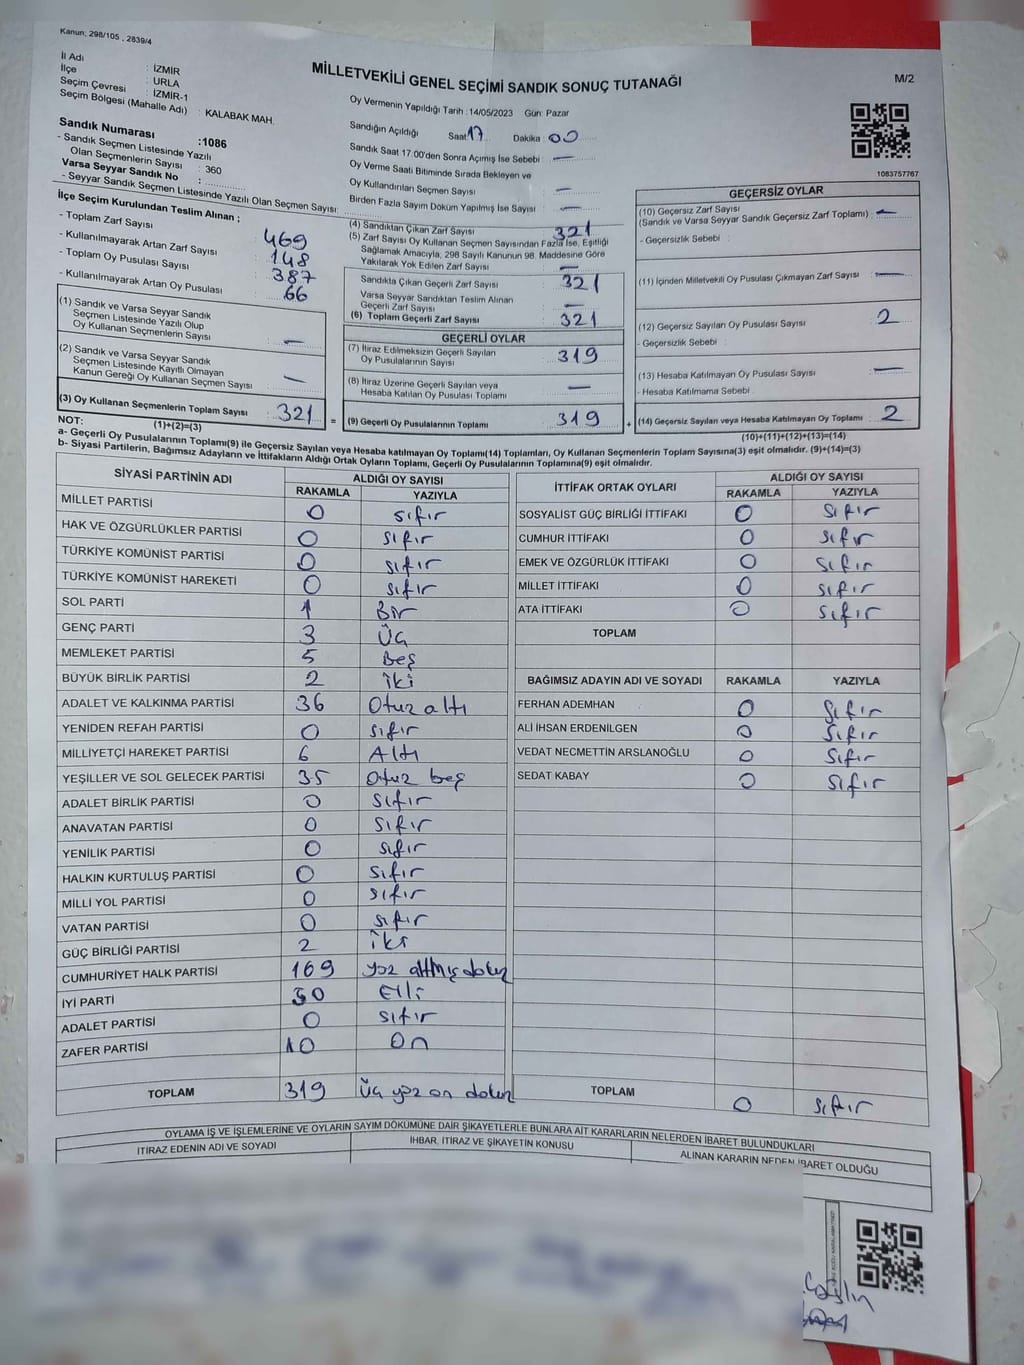 Kanun; 298/105 , 2839/4
MİLLETVEKİLİ GENEL SEÇİMİ SANDIK SONUÇ TUTANAĞI
M/2
İl Adı : İZMİR
İlçe : URLA
Seçim Çevresi : İZMİR-1
Seçim Bölgesi (Mahalle Adı) : KALABAK MAH.
Sandık Numarası :1086
- Sandık Seçmen Listesinde Yazılı
Olan Seçmenlerin Sayısı : 360
Varsa Seyyar Sandık No :
- Seyyar Sandık Seçmen Listesinde Yazılı Olan Seçmen Sayısı:
Oy Vermenin Yapıldığı Tarih :14/05/2023 Gün: Pazar
Sandığın Açıldığı Saat: 17 Dakika : 00
Sandık Saat 17.00'den Sonra Açımış İse Sebebi : —
Oy Verme Saati Bitiminde Sırada Bekleyen ve
Oy Kullandırılan Seçmen Sayısı : —
Birden Fazla Sayım Döküm Yapılmış İse Sayısı : —
1083757767
İlçe Seçim Kurulundan Teslim Alınan ;
- Toplam Zarf Sayısı : 469
- Kullanılmayarak Artan Zarf Sayısı : 148
- Toplam Oy Pusulası Sayısı : 387
- Kullanılmayarak Artan Oy Pusulası : 66
(1) Sandık ve Varsa Seyyar Sandık
Seçmen Listesinde Yazılı Olup
Oy Kullanan Seçmenlerin Sayısı : —
(2) Sandık ve Varsa Seyyar Sandık
Seçmen Listesinde Kayıtlı Olmayan
Kanun Gereği Oy Kullanan Seçmen Sayısı : —
(3) Oy Kullanan Seçmenlerin Toplam Sayısı : 321 =
(1)+(2)=(3)
(4) Sandıktan Çıkan Zarf Sayısı : 321
(5) Zarf Sayısı Oy Kullanan Seçmen Sayısından Fazla İse, Eşitliği
Sağlamak Amacıyla, 298 Sayılı Kanunun 98. Maddesine Göre
Yakılarak Yok Edilen Zarf Sayısı : —
Sandıkta Çıkan Geçerli Zarf Sayısı : 321
Varsa Seyyar Sandıktan Teslim Alınan
Geçerli Zarf Sayısı : —
(6) Toplam Geçerli Zarf Sayısı : 321
GEÇERLİ OYLAR
(7) İtiraz Edilmeksizin Geçerli Sayılan
Oy Pusulalarının Sayısı : 319
(8) İtiraz Üzerine Geçerli Sayılan veya
Hesaba Katılan Oy Pusulası Toplamı : —
(9) Geçerli Oy Pusulalarının Toplamı : 319 +
GEÇERSİZ OYLAR
(10) Geçersiz Zarf Sayısı
(Sandık ve Varsa Seyyar Sandık Geçersiz Zarf Toplamı) : —
- Geçersizlik Sebebi :
(11) İçinden Milletvekili Oy Pusulası Çıkmayan Zarf Sayısı : —
(12) Geçersiz Sayılan Oy Pusulası Sayısı : 2
- Geçersizlik Sebebi :
(13) Hesaba Katılmayan Oy Pusulası Sayısı : —
- Hesaba Katılmama Sebebi :
(14) Geçersiz Sayılan veya Hesaba Katılmayan Oy Toplamı : 2
(10)+(11)+(12)+(13)=(14)
NOT:
a- Geçerli Oy Pusulalarının Toplamı(9) ile Geçersiz Sayılan veya Hesaba katılmayan Oy Toplamı(14) Toplamları, Oy Kullanan Seçmenlerin Toplam Sayısına(3) eşit olmalıdır. (9)+(14)=(3)
b- Siyasi Partilerin, Bağımsız Adayların ve İttifakların Aldığı Ortak Oyların Toplamı, Geçerli Oy Pusulalarının Toplamına(9) eşit olmalıdır.
SİYASİ PARTİNİN ADI ALDIĞI OY SAYISI
RAKAMLA YAZIYLA
MİLLET PARTİSİ 0 sıfır
HAK VE ÖZGÜRLÜKLER PARTİSİ 0 sıfır
TÜRKİYE KOMÜNİST PARTİSİ 0 sıfır
TÜRKİYE KOMÜNİST HAREKETİ 0 sıfır
SOL PARTİ 1 Bir
GENÇ PARTİ 3 Üç
MEMLEKET PARTİSİ 5 Beş
BÜYÜK BİRLİK PARTİSİ 2 iki
ADALET VE KALKINMA PARTİSİ 36 Otuz altı
YENİDEN REFAH PARTİSİ 0 sıfır
MİLLİYETÇİ HAREKET PARTİSİ 6 Altı
YEŞİLLER VE SOL GELECEK PARTİSİ 35 Otuz beş
ADALET BİRLİK PARTİSİ 0 sıfır
ANAVATAN PARTİSİ 0 sıfır
YENİLİK PARTİSİ 0 sıfır
HALKIN KURTULUŞ PARTİSİ 0 sıfır
MİLLİ YOL PARTİSİ 0 sıfır
VATAN PARTİSİ 0 sıfır
GÜÇ BİRLİĞİ PARTİSİ 2 iki
CUMHURİYET HALK PARTİSİ 169 yüz altmış dokuz
İYİ PARTİ 50 Elli
ADALET PARTİSİ 0 sıfır
ZAFER PARTİSİ 10 On
TOPLAM 319 Üç yüz on dokuz
İTTİFAK ORTAK OYLARI ALDIĞI OY SAYISI
RAKAMLA YAZIYLA
SOSYALİST GÜÇ BİRLİĞİ İTTİFAKI 0 sıfır
CUMHUR İTTİFAKI 0 sıfır
EMEK VE ÖZGÜRLÜK İTTİFAKI 0 sıfır
MİLLET İTTİFAKI 0 sıfır
ATA İTTİFAKI 0 sıfır
TOPLAM
BAĞIMSIZ ADAYIN ADI VE SOYADI RAKAMLA YAZIYLA
FERHAN ADEMHAN 0 sıfır
ALİ İHSAN ERDENİLGEN 0 sıfır
VEDAT NECMETTİN ARSLANOĞLU 0 sıfır
SEDAT KABAY 0 sıfır
TOPLAM 0 sıfır
OYLAMA İŞ VE İŞLEMLERİNE VE OYLARIN SAYIM DÖKÜMÜNE DAİR ŞİKAYETLERLE BUNLARA AİT KARARLARIN NELERDEN İBARET BULUNDUKLARI
İTİRAZ EDENİN ADI VE SOYADI İHBAR, İTİRAZ VE ŞİKAYETİN KONUSU ALINAN KARARIN NEDEN İBARET OLDUĞU